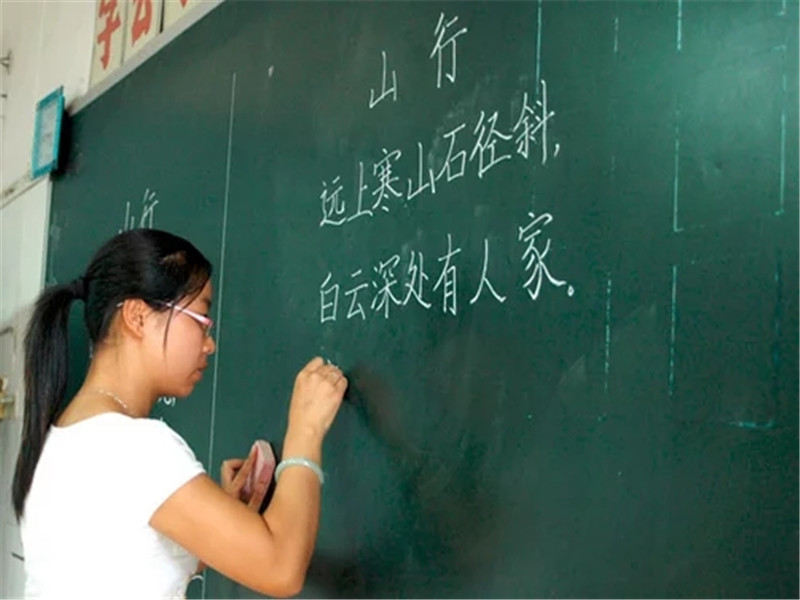 学
山行
远上寒山石径斜，
白云深处有人家。
山行